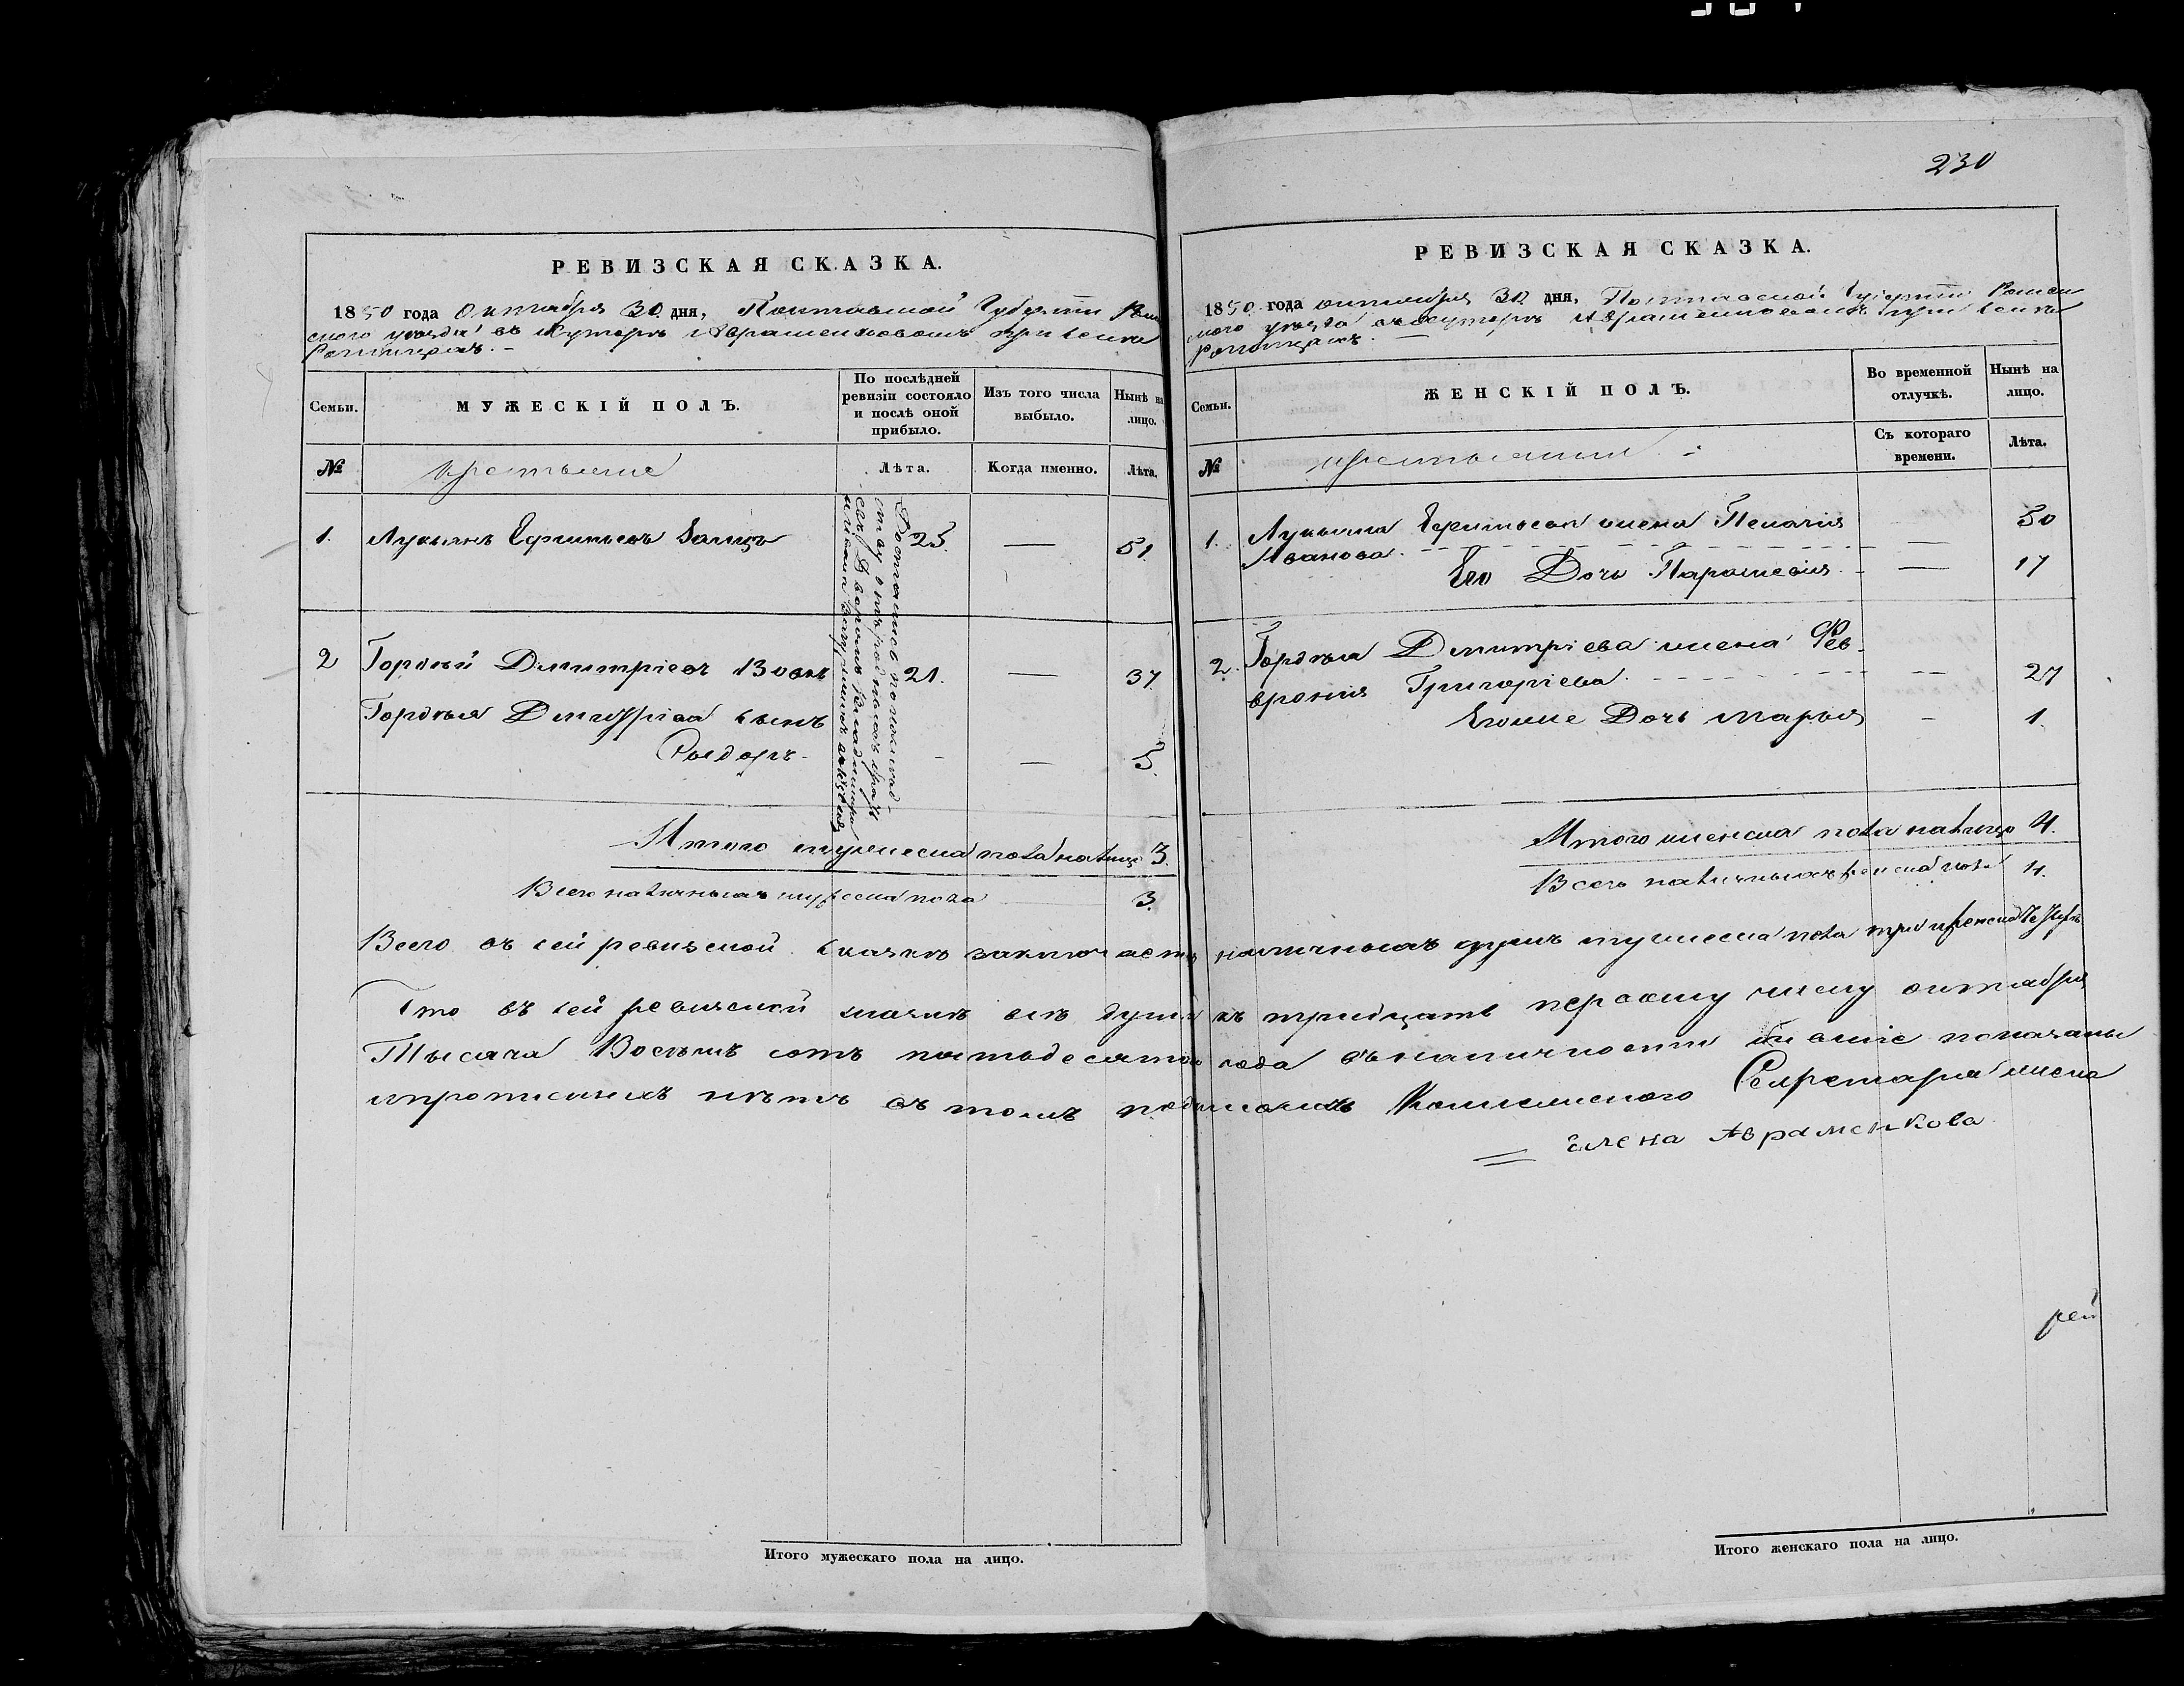 230
РЕВИЗСКАЯ СКАЗКА.
1850 года Октября 30 дня, Полтавской Губерніи Ромен
ского уезда въ Хуторѣ Авраменковомъ при селе
Семьи.
МУЖЕСКІЙ ПОЛЪ.
По послѣдней ревизіи состояло и послѣ оной прибыло.
Изъ того числа выбыло.
Нынѣ на лицо.
№
крестьяне
Лѣта.
Когда именно.
Лѣта.
1. Лукьянъ Ефимьевъ 25. — 51.
2 Гордѣй Дмитріевъ 21. — 37.
Гордѣя Дмитріева сынъ
Федоръ - — 5.
Итого мужеска пола налицо 3.
Всего наличныхъ мужеска пола 3.
РЕВИЗСКАЯ СКАЗКА.
1850 года октября 30 дня, Полтавской Губерніи Ромен
ского уѣзда въ хуторѣ Авраменковомъ при селе
Семьи.
ЖЕНСКІЙ ПОЛЪ.
Во временной отлучкѣ.
Нынѣ на лицо.
№
крестьянки
Съ котораго времени.
Лѣта.
1. Лукьяна Ефимьева жена Пелагія
Иванова — 50
Его Дочь Параскевія — 17
2. Гордѣя Дмитріева жена Фев-
ронія Григоріева — 27
Его же Дочь Марья - 1.
Итого женска пола налицо 4.
Всего наличныхъ женска пола 4.
Всего въ сей ревизской сказкѣ заключается наличныхъ душъ мужеска пола три и женска Четыре
Что въ сей ревизской сказкѣ всѣ души къ тридцать первому числу октября
Тысяча Восемь сотъ пятьдесятого года въ наличности бывшіе показаны
и прописныхъ нѣтъ въ томъ подписомъ Колежского Секретаря жена
Елена Авраменкова
рей
Итого мужескаго пола на лицо.
Итого женскаго пола на лицо.